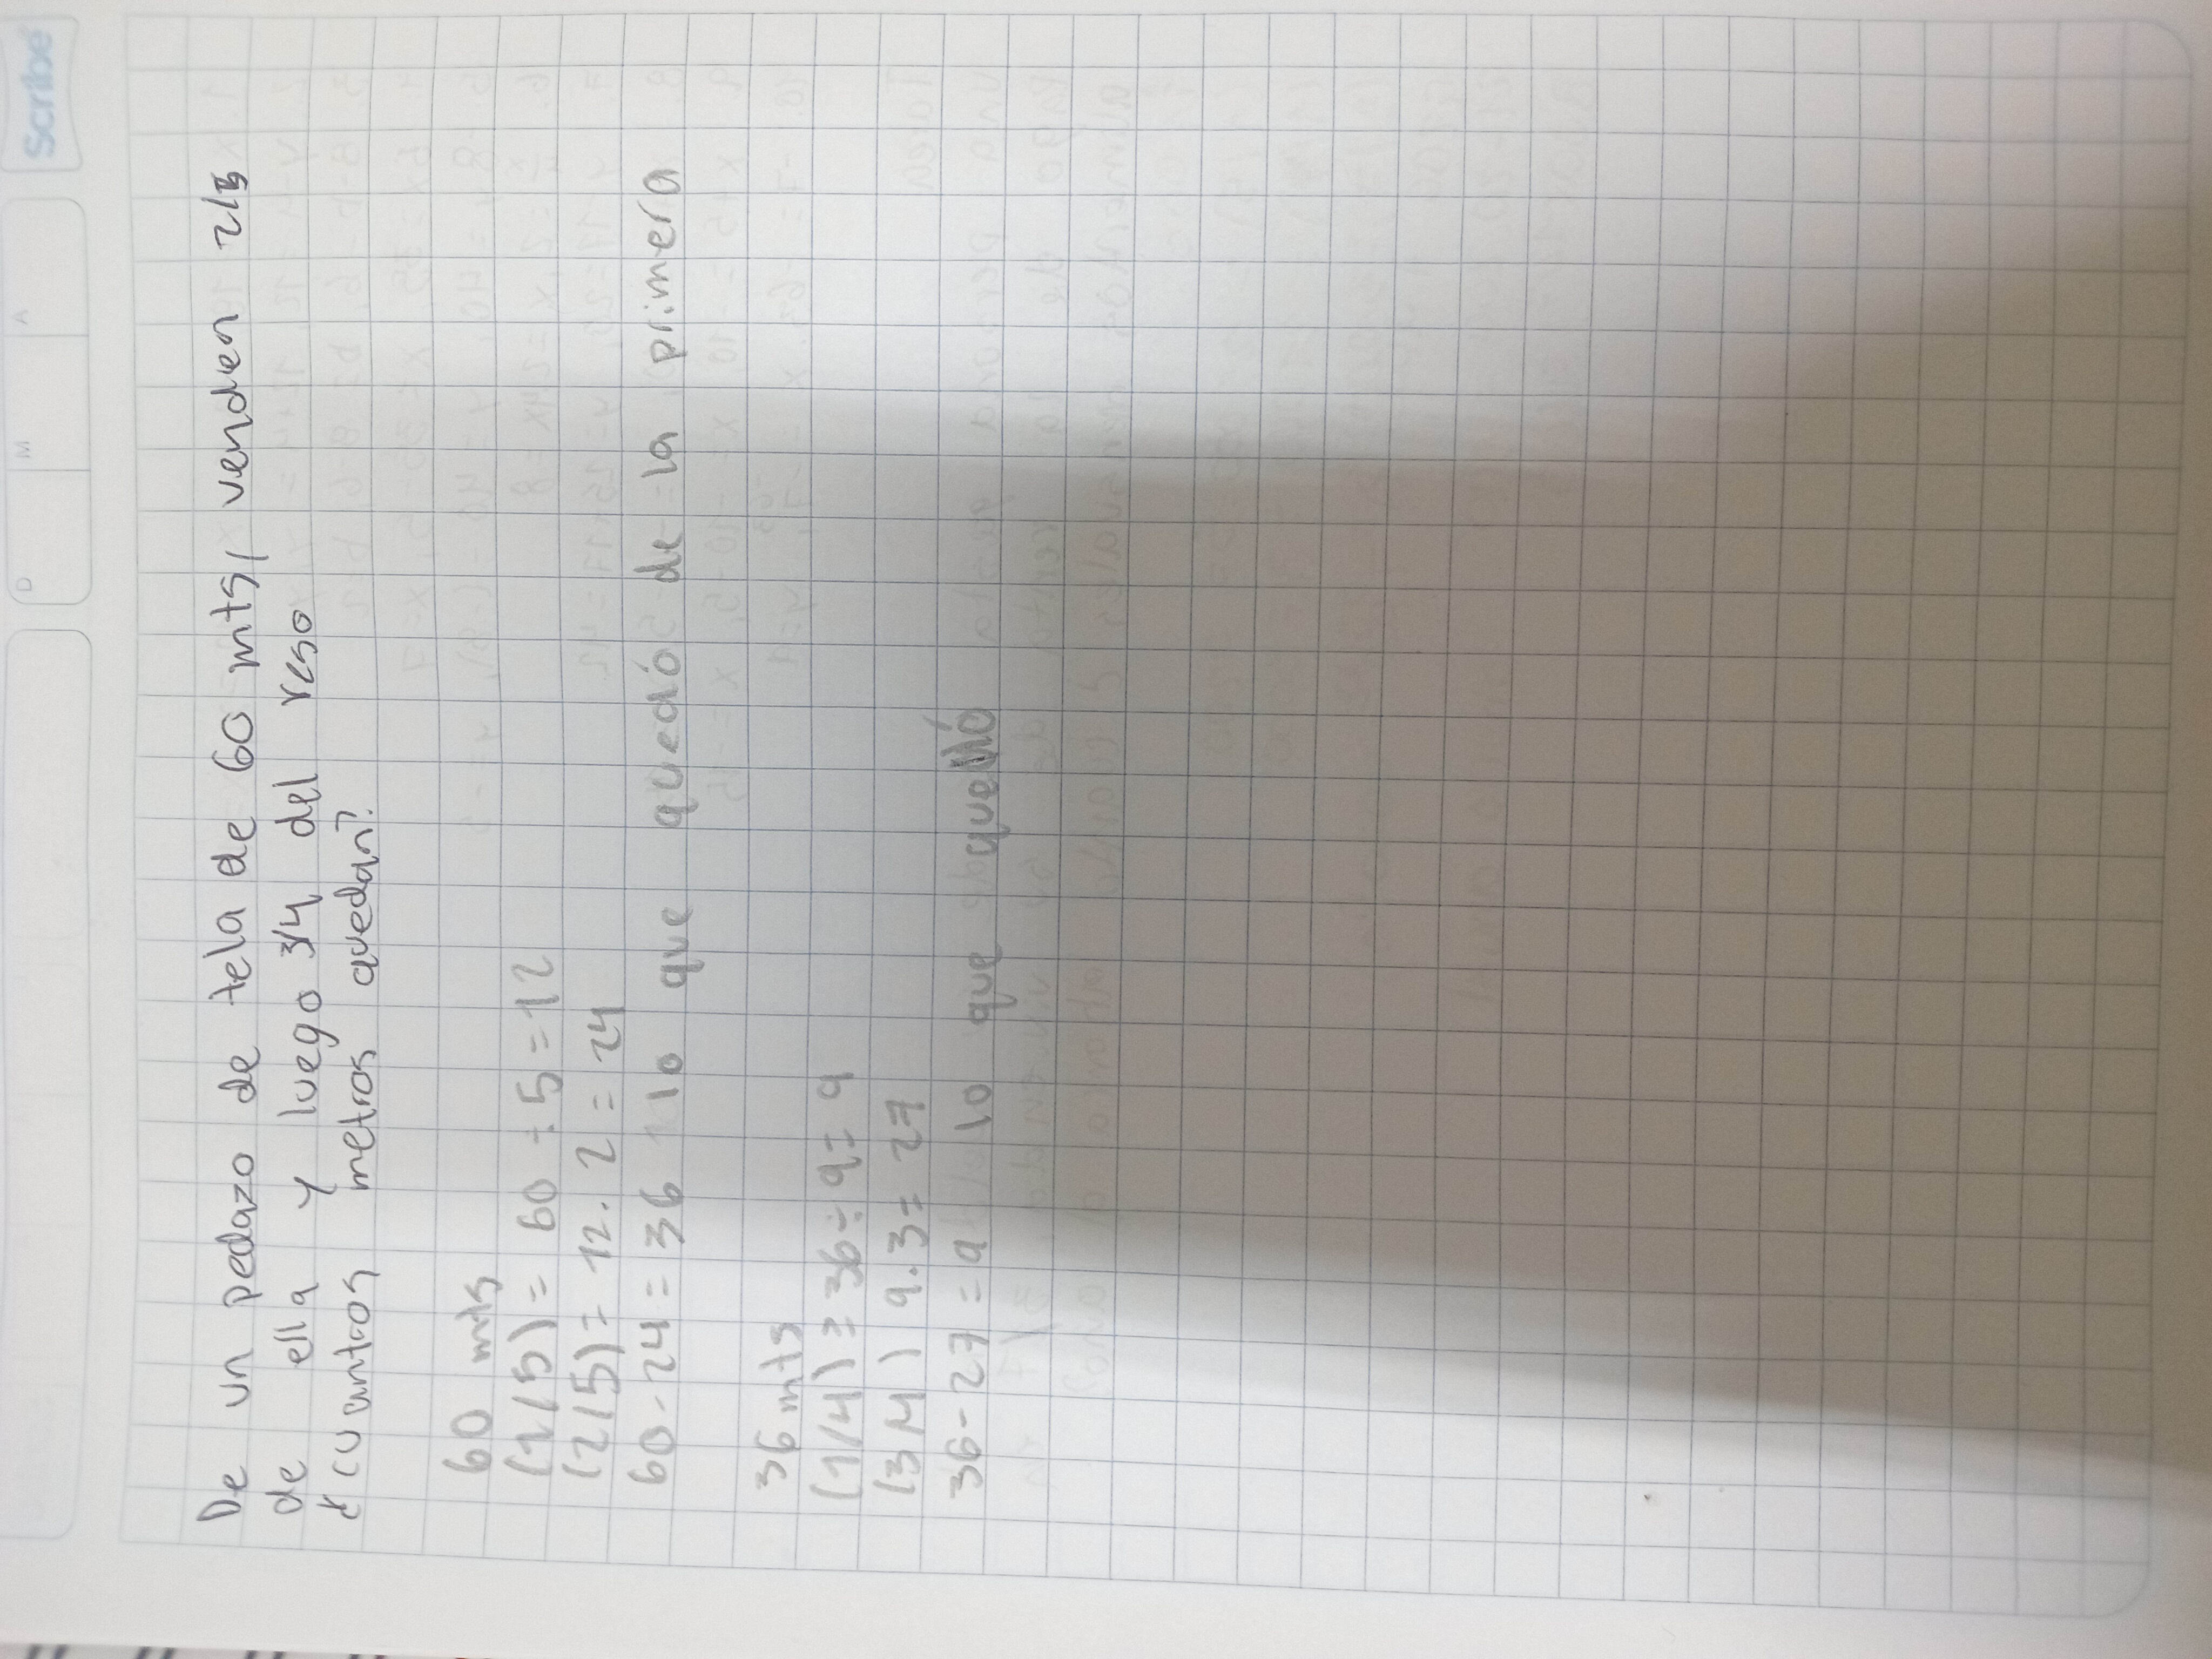 Scribe
D M A
De un pedazo de tela de 60 mts, venden 2/5
de ella y luego 3/4 del reso
¿cuantos metros quedan?
60 mts
(1/5)= 60÷5=12
(2/5)= 12.2=24
60-24=36 lo que quedó de la primera
36 mts
(1/4)=36÷9=9
(3/4) 9.3=27
36-27=9 lo que